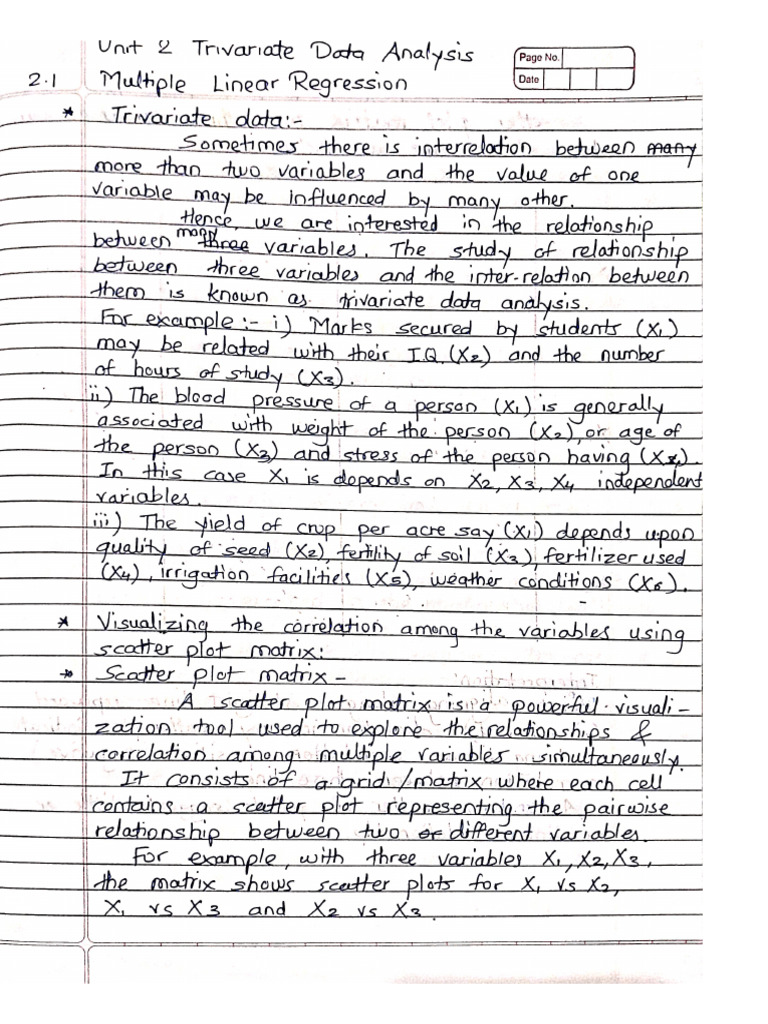 Unit 2 Trivariate Data Analysis
Page No.
Date
2.1 Multiple Linear Regression
* Trivariate data:-
Sometimes there is interrelation between many
more than two variables and the value of one
variable may be influenced by many other.
Hence, we are interested in the relationship
between many three variables. The study of relationship
between three variables and the inter-relation between
them is known as trivariate data analysis.
For example:- i) Marks secured by students (X₁)
may be related with their I.Q. (X₂) and the number
of hours of study (X₃).
ii) The blood pressure of a person (X₁) is generally
associated with weight of the person (X₂), or age of
the person (X₃) and stress of the person having (X₄).
In this case X₁ is depends on X₂, X₃, X₄ independent
variables.
iii) The yield of crup per acre say (X₁) depends upon
quality of seed (X₂), fertility of soil (X₃), fertilizer used
(X₄), irrigation facilities (X₅), weather conditions (X₆).
* Visualizing the correlation among the variables using
scatter plot matrix:
→ Scatter plot matrix -
A scatter plot matrix is a powerful visuali-
zation tool used to explore the relationships &
correlation among multiple variables simultaneously.
It consists of a grid/matrix where each cell
contains a scatter plot representing the pairwise
relationship between two or different variables.
For example, with three variables X₁, X₂, X₃,
the matrix shows scatter plots for X₁ vs X₂,
X₁ vs X₃ and X₂ vs X₃.